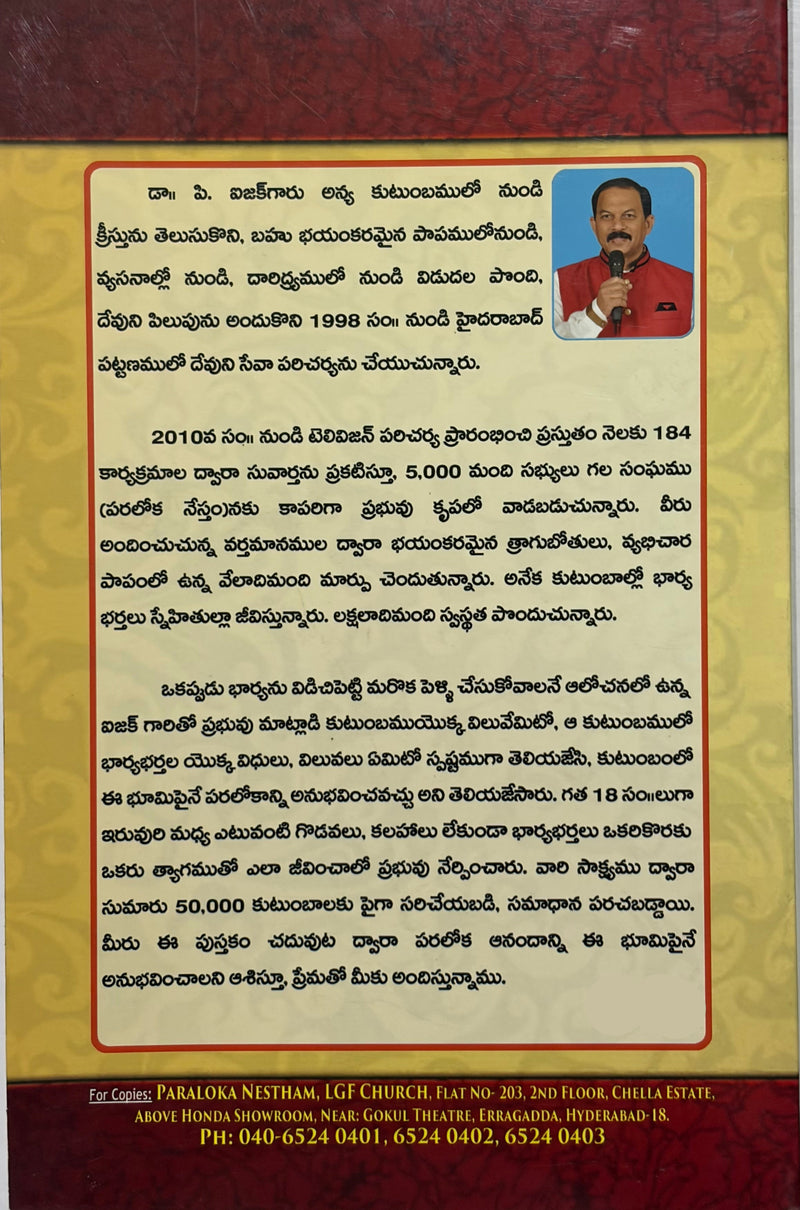 డా॥ పి. ఐజక్‌గారు అన్య కుటుంబములో నుండి
క్రీస్తును తెలుసుకొని, బహు భయంకరమైన పాపములోనుండి,
వ్యసనాల్లో నుండి, దారిద్ర్యములో నుండి విడుదల పొంది,
దేవుని పిలుపును అందుకొని 1998 సం॥ నుండి హైదరాబాద్
పట్టణములో దేవుని సేవా పరిచర్యను చేయుచున్నారు.
2010వ సం॥ నుండి టెలివిజన్ పరిచర్య ప్రారంభించి ప్రస్తుతం నెలకు 184
కార్యక్రమాల ద్వారా సువార్తను ప్రకటిస్తూ, 5,000 మంది సభ్యులు గల సంఘము
(పరలోక నేస్తం)నకు కాపరిగా ప్రభువు కృపలో వాడబడుచున్నారు. వీరు
అందించుచున్న వర్తమానముల ద్వారా భయంకరమైన త్రాగుబోతులు, వ్యభిచార
పాపంలో ఉన్న వేలాదిమంది మార్పు చెందుతున్నారు. అనేక కుటుంబాల్లో భార్య
భర్తలు స్నేహితుల్లా జీవిస్తున్నారు. లక్షలాదిమంది స్వస్థత పొందుచున్నారు.
ఒకప్పుడు భార్యను విడిచిపెట్టి మరొక పెళ్ళి చేసుకోవాలనే ఆలోచనలో ఉన్న
ఐజక్ గారితో ప్రభువు మాట్లాడి కుటుంబముయొక్క విలువేమిటో, ఆ కుటుంబములో
భార్యభర్తల యొక్క విధులు, విలువలు ఏమిటో స్పష్టముగా తెలియజేసి, కుటుంబంలో
ఈ భూమిపైనే పరలోకాన్ని అనుభవించవచ్చు అని తెలియజేసారు. గత 18 సం॥లుగా
ఇరువురి మధ్య ఎటువంటి గొడవలు, కలహాలు లేకుండా భార్యభర్తలు ఒకరికొరకు
ఒకరు త్యాగముతో ఎలా జీవించాలో ప్రభువు నేర్పించారు. వారి సాక్ష్యము ద్వారా
సుమారు 50,000 కుటుంబాలకు పైగా సరిచేయబడి, సమాధాన పరచబడ్డాయి.
మీరు ఈ పుస్తకం చదువుట ద్వారా పరలోక ఆనందాన్ని ఈ భూమిపైనే
అనుభవించాలని ఆశిస్తూ, ప్రేమతో మీకు అందిస్తున్నాము.
For Copies: PARALOKA NESTHAM, LGF CHURCH, FLAT NO- 203, 2ND FLOOR, CHELLA ESTATE,
ABOVE HONDA SHOWROOM, NEAR: GOKUL THEATRE, ERRAGADDA, HYDERABAD-18.
PH: 040-6524 0401, 6524 0402, 6524 0403